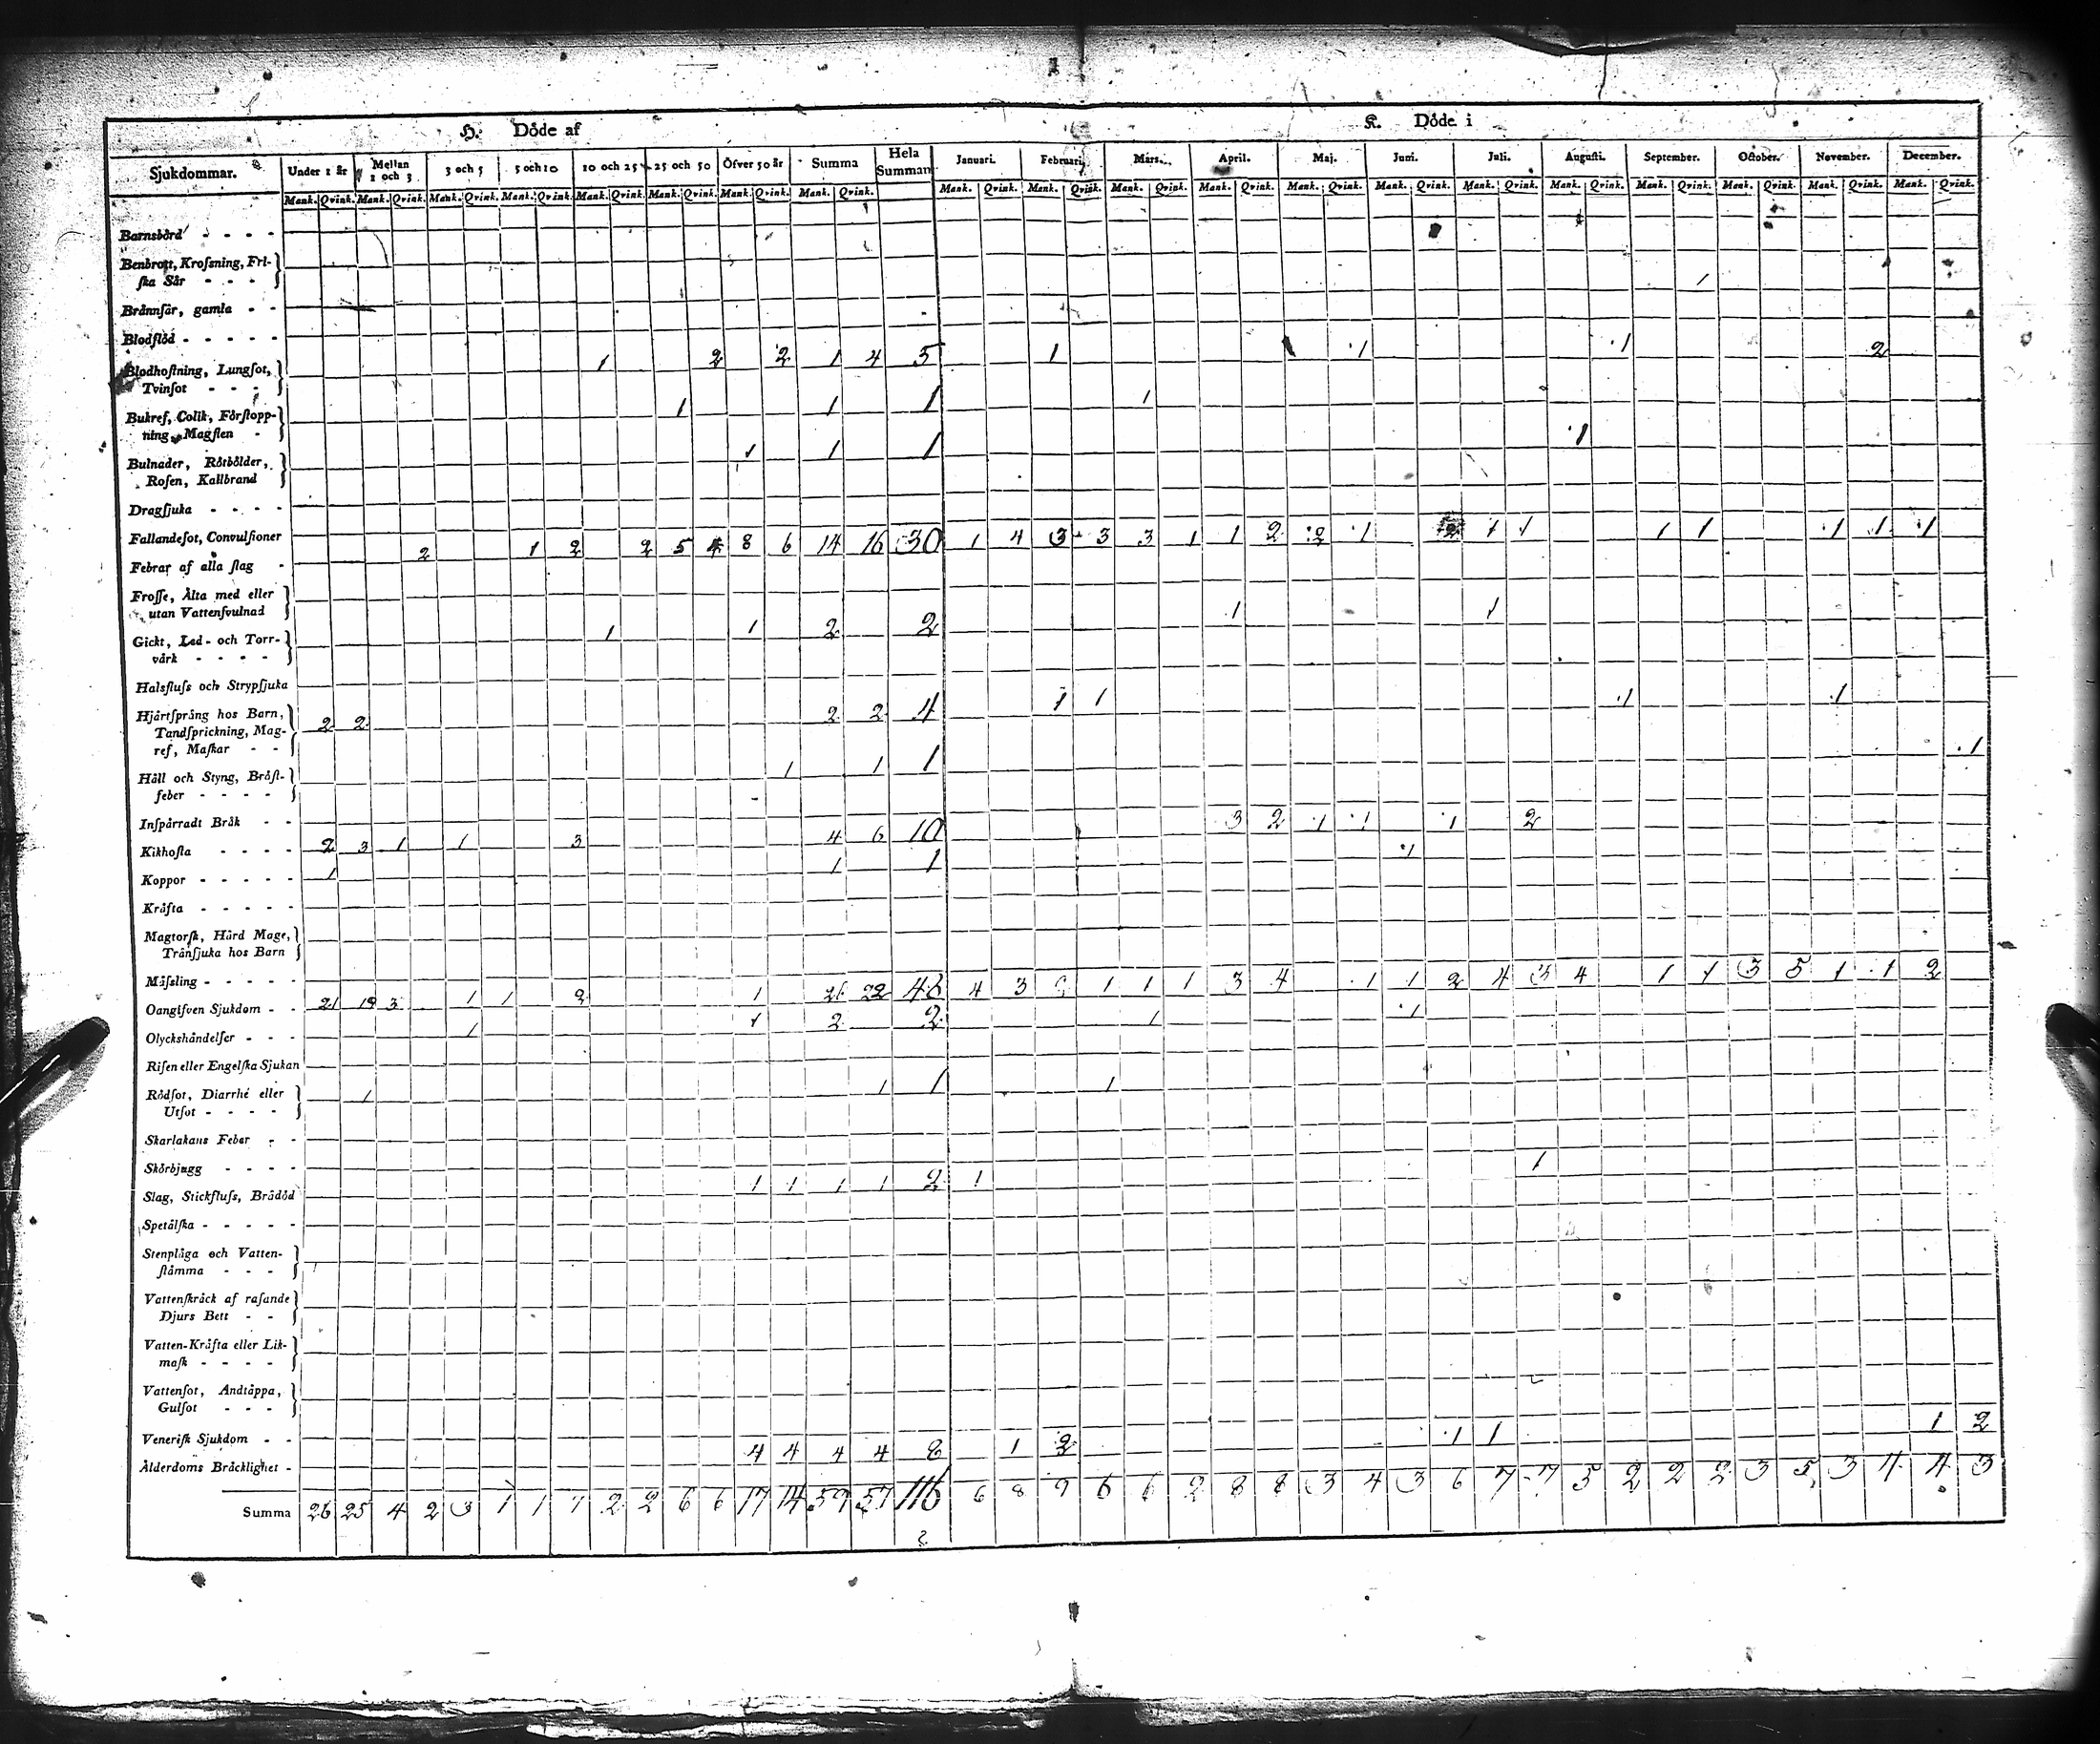 H. Döde af K. Döde i
Sjukdommar. Under 1 år Mellan 1 och 3 3 och 5 5 och 10 10 och 25 25 och 50 Öfver 50 år Summa Hela Summan Januari. Februari. Mars. April. Maj. Juni. Juli. Augusti. September. October. November. December.
Mank. Qvink. Mank. Qvink. Mank. Qvink. Mank. Qvink. Mank. Qvink. Mank. Qvink. Mank. Qvink. Mank. Qvink. Mank. Qvink. Mank. Qvink. Mank. Qvink. Mank. Qvink. Mank. Qvink. Mank. Qvink. Mank. Qvink. Mank. Qvink. Mank. Qvink. Mank. Qvink. Mank. Qvink. Mank. Qvink.
Barnsbörd - - - -
Benbrott, Krofsning, Fri-
ska Sår - - -
Brännsår, gamla - -
Blodflöd - - - - -
1 2 2 1 4 5 1 1 1 2
Blodhostning, Lungsot,
Tvinsot - - -
1 1 1 1
Bukref, Colik, Förstopp-
ning, Magsten -
1 1 1 1
Bulnader, Rötbölder,
Rosen, Kallbrand
Dragsjuka - - - -
Fallandesot, Convulsioner
2 1 2 2 5 4 8 6 14 16 30 1 4 3 3 3 1 1 2 2 1 2 1 1 1 1 1 1 1
Febrar af alla slag -
Frosse, Älta med eller
utan Vattensvulnad
1 1 2 2 1 1
Gickt, Led- och Torr-
värk - - - -
Halsfluss och Strypsjuka
2 2 2 2 4 1 1 1 1
Hjärtsprång hos Barn,
Tandsprickning, Mag-
ref, Maskar - -
1 1 1 1
Håll och Styng, Bröst-
feber - - - -
Inspärradt Bråk - -
2 3 1 1 3 4 6 10 3 2 1 1 1 2
Kikhosta - - - -
1 1 1 1
Koppor - - - - -
Kräfta - - - - -
Magtorsk, Hård Mage,
Trånsjuka hos Barn
Mässling - - - - -
21 19 3 1 1 2 1 22 48 4 3 1 1 1 3 4 1 1 2 4 3 4 1 1 3 5 1 1 2
Oangifven Sjukdom - -
1 1 2 2 1 1
Olyckshändelser - - -
Risen eller Engelska Sjukan
1 1 1 1
Rödsot, Diarrhé eller
Utsot - - - -
Skarlakans Feber - -
Skörbjugg - - - -
1 1 1 1 2 1 1
Slag, Stickfluss, Brådöd
Spetälska - - - - -
Stenplåga och Vatten-
stämma - - -
Vattenskräck af rasande
Djurs Bett - -
Vatten-Kräfta eller Lik-
mask - - - -
Vattensot, Andtäppa,
Gulsot - - -
Venerisk Sjukdom - -
4 4 4 4 8 1 2 1 1 1 2
Ålderdoms Bräcklighet -
Summa 26 25 4 2 3 1 1 7 2 2 6 6 17 14 59 57 116 6 8 9 6 6 2 8 8 3 4 3 6 7 7 5 2 2 2 3 5 3 4 4 3